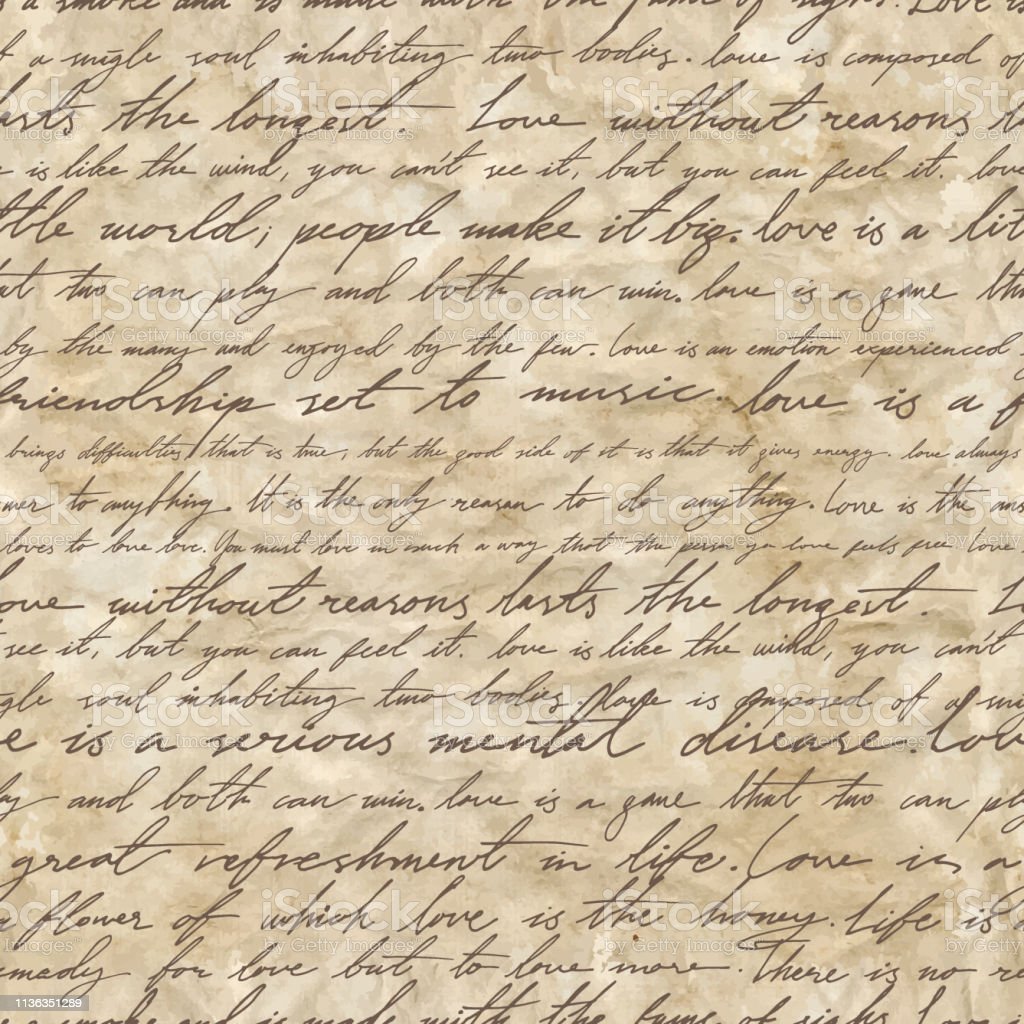 s a smoke and is made with the fume of sighs. Love is
f a single soul inhabiting two bodies. love is composed of
lasts the longest. Love without reasons l
e is like the wind, you can't see it, but you can feel it. love
ttle world; people make it big. love is a lit
at two can play and both can win. love is a game tha
by the many and enjoyed by the few. Love is an emotion experienced
friendship set to music. love is a f
brings difficulties, that is true, but the good side of it is that it gives energy. love always
swer to anything. It is the only reason to do anything. Love is the ans
loves to love love. You must love in such a way that the person yo love feels free. Love
ove without reasons lasts the longest. L
see it, but you can feel it. love is like the wind, you can't
ngle soul inhabiting two bodies. love is composed of a sing
e is a serious mental disease. lov
ay and both can win. love is a game that two can pl
great refreshment in life. Love is a
flower of which love is the honey. Life is
emedy for love but to love more. There is no re
a smoke and is made with the fume of sighs. Love i
iStock
by Getty Images
1136351289